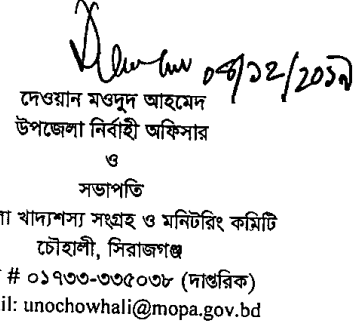 ০৪/১২/২০১৯
দেওয়ান মওদুদ আহমেদ
উপজেলা নির্বাহী অফিসার
ও
সভাপতি
া খাদ্যশস্য সংগ্রহ ও মনিটরিং কমিটি
চৌহালী, সিরাজগঞ্জ
# ০১৭৩৩-৩৩৫০৩৮ (দাপ্তরিক)
il: unochowhali@mopa.gov.bd